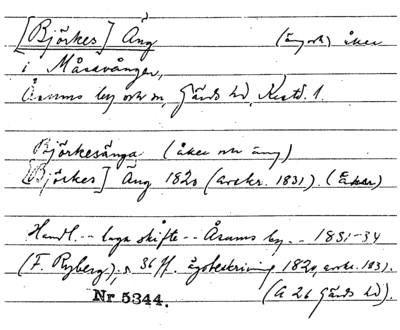 [Björkes] Äng (äng och) åker
i Måsavången,
Åsums by och sn, Gärds hd, Krstd. l.
Björkesänga (åker och äng)
[Björkes] Äng 1820 (avskr. 1831). (Åker)
Handl. -- laga skifte -- Åsums by -- 1831-34
(F. Ryberg), s. 36 ff. ägobeskrivning 1820, avskr. 1831.
Nr 5344. (A 26 Gärds hd).